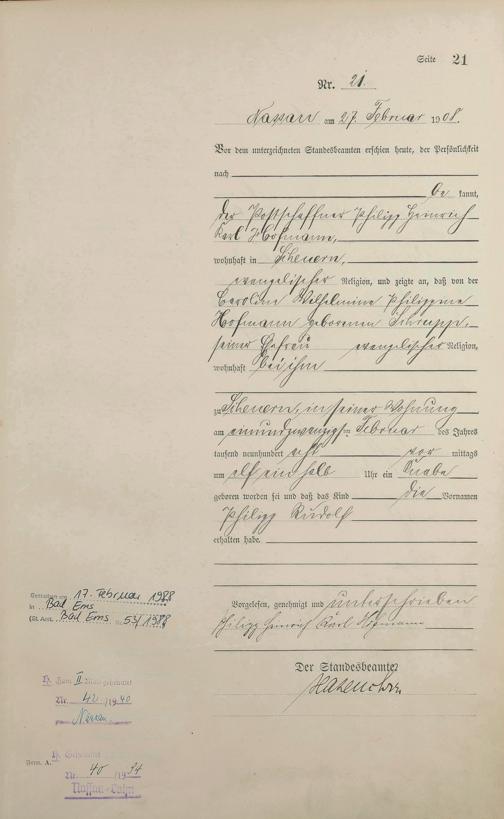 Seite 21
Nr. 21.
Nassau am 27. Februar 1908.
Vor dem unterzeichneten Standesbeamten erschien heute, der Persönlichkeit
nach
kannt,
der Postschaffner Philipp Heinrich
Karl Hofmann,
wohnhaft in Scheuern,
evangelischer Religion, und zeigte an, daß von der
Caroline Wilhelmine Philippine
Hofmann geborenen Schrupp,
seiner Ehefrau evangelischer Religion,
wohnhaft bei ihm
zu Scheuern, in seiner Wohnung
am einundzwanzigsten Februar des Jahres
tausend neunhundert acht vormittags
um elf einhalb Uhr ein Knabe
geboren worden sei und daß das Kind die Vornamen
Philipp Rudolf
erhalten habe.
Vorgelesen, genehmigt und unterschrieben
Philipp Heinrich Karl Hofmann
Der Standesbeamte
Gestorben am 17. Februar 1988
in Bad Ems
(St. Amt. Bad Ems Nr. 53/1988
II
Nr. 42/1940
Nassau
Form. A.
Nr. 40/1934
Nassau-Lahn